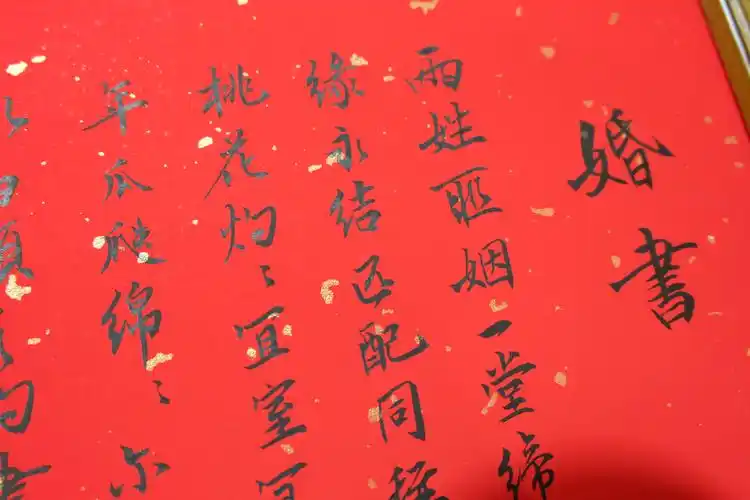 婚書
兩姓聯姻一堂締
緣永结匹配同稱
桃花灼〻宜室宜
年瓜瓞綿〻尔